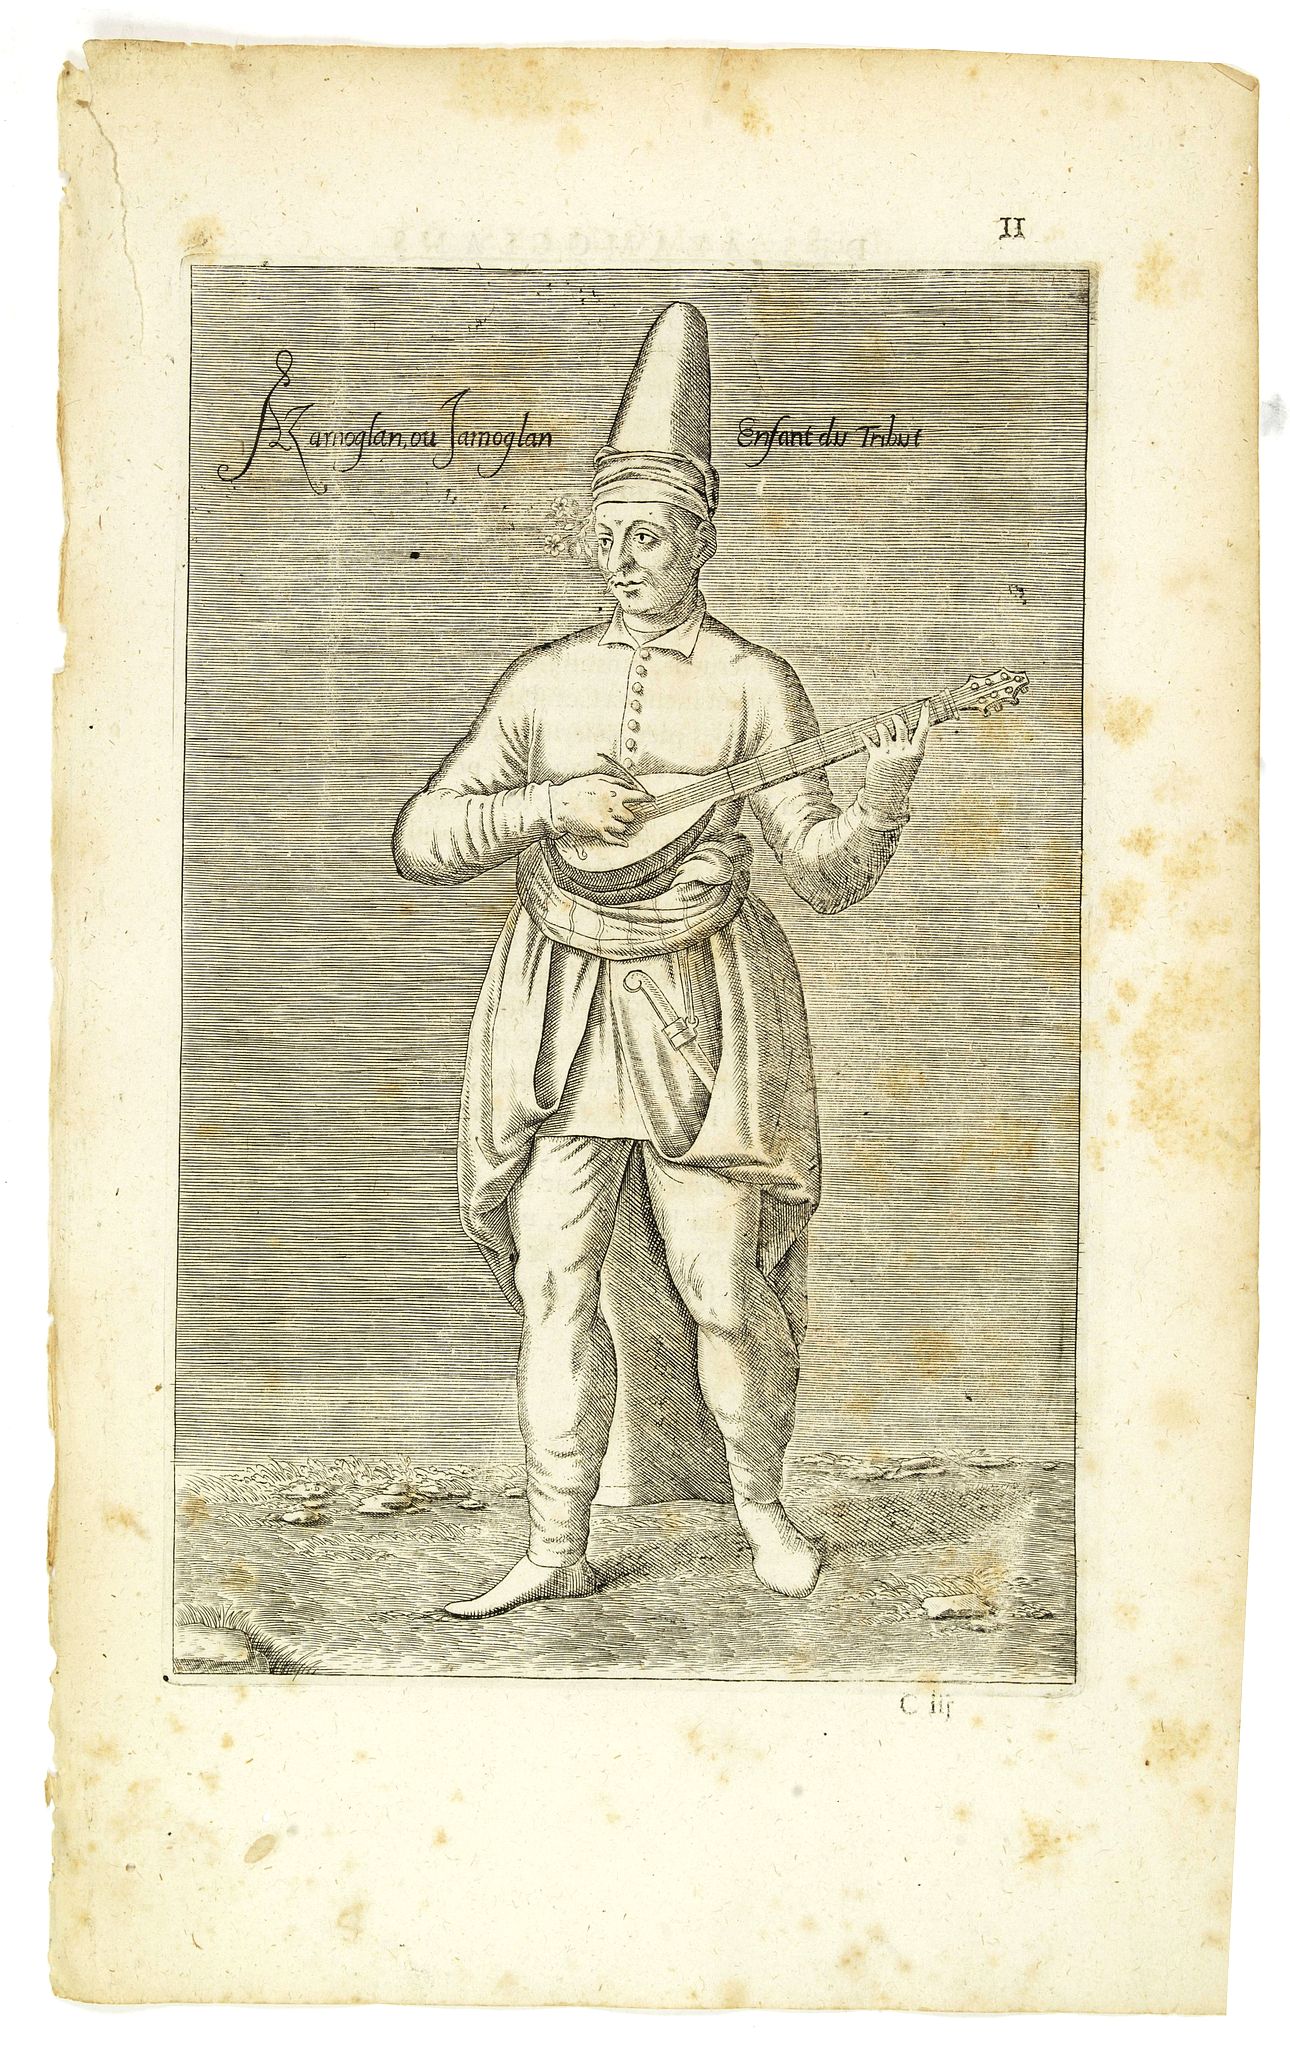 II
Azamoglan, ou Jamoglan Enfant du Tribut
C iij